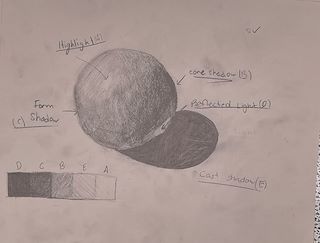 Highlight(A)
core shadow(B)
Form
Shadow
(C)
Reflected light(D)
Cast shadow(E)
D C B E A